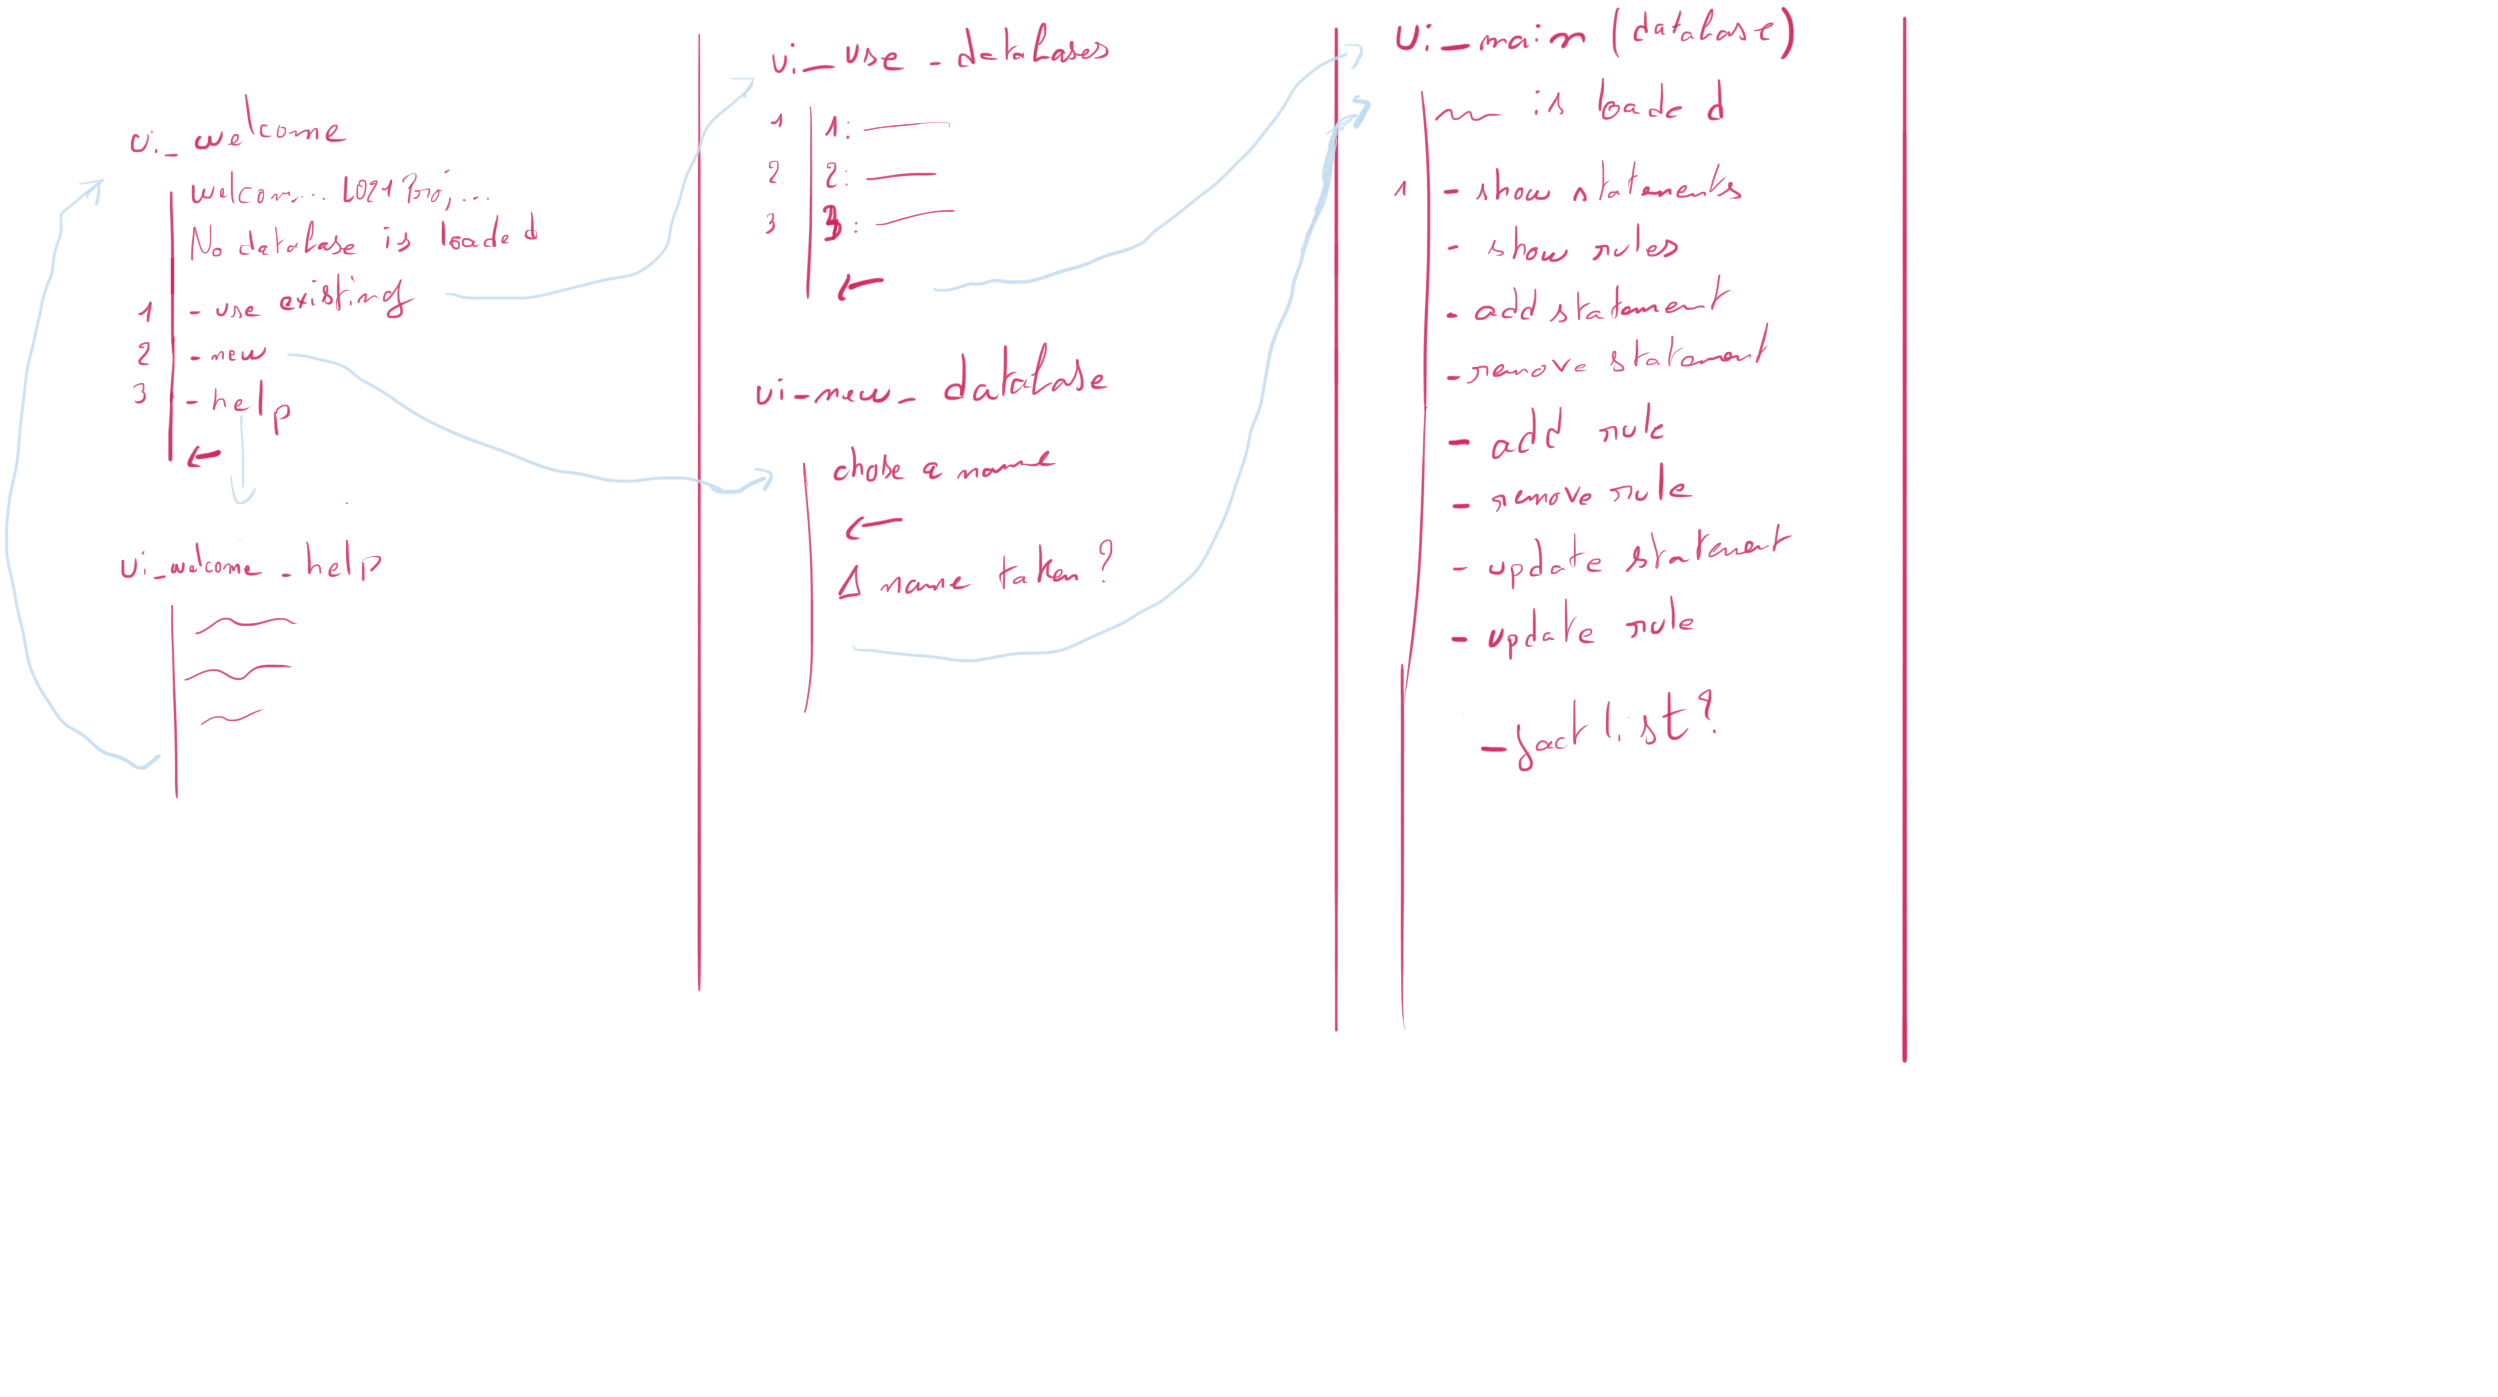 ui_welcome
No database is loaded
1 - use existing
2 - new
3 - help
ui_welcome_help
ui_use_databases
1 1:
2 2:
3 3:
ui-new_database
chose a name
Δ name taken?
ui_main (database)
is loaded
1 - show statements
- show rules
- add statement
- remove statement
- add rule
- remove rule
- update statement
- update rule
- fact list?